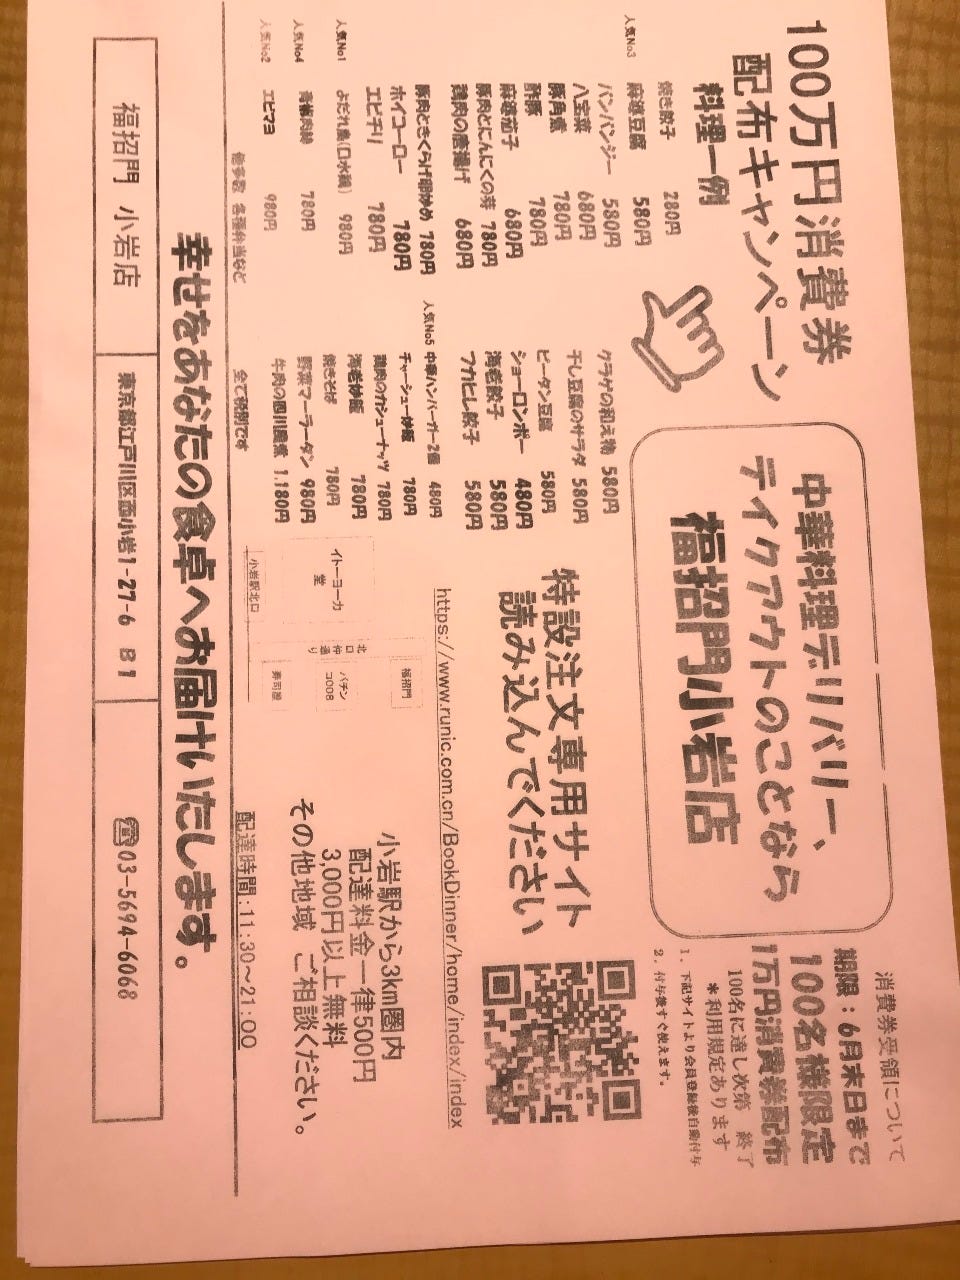 100万円消費券
配布キャンペーン
中華料理デリバリー、
テイクアウトのことなら
福招門小岩店
消費券受領について
期限：6月末日まで
100名様限定
1万円消費券配布
100名に達し次第 終了
＊利用規定あります
1．下記サイトより会員登録後自動付与
2．付与後すぐ使えます。
料理一例
焼き餃子 280円
人気No3 麻婆豆腐 580円
バンバンジー 580円
八宝菜 680円
豚角煮 780円
酢豚 780円
麻婆茄子 680円
豚肉とにんにくの芽 780円
鶏肉の唐揚げ 680円
豚肉ときくらげ卵炒め 780円
ホイコーロー 780円
エビチリ 780円
人気No1 よだれ鳥(口水鶏) 980円
人気No4 青椒肉絲 780円
人気No2 エビマヨ 980円
他多数 各種弁当など
クラゲの和え物 580円
干し豆腐のサラダ 580円
ピータン豆腐 580円
ショーロンポー 480円
海老餃子 580円
フカヒレ餃子 580円
人気No5 中華ハンバーガー2個 480円
チャーシュー炒飯 780円
鶏肉のカシューナッツ 780円
海老炒飯 780円
焼きそば 780円
野菜マーラータン 980円
牛肉の四川風煮 1,180円
全て税別です
特設注文専用サイト
読み込んでください
https://www.runic.com.cn/BookDinner/home/index/index
福招門
パチンコ008
寿司屋
北口仲通り
イトーヨーカ堂
小岩駅北口
小岩駅から3km圏内
配達料金一律500円
3,000円以上無料
その他地域 ご相談ください。
配達時間:11:30～21:00
幸せをあなたの食卓へお届けいたします。
福招門 小岩店
東京都江戸川区西小岩1-27-6 B1
☎03-5694-6068